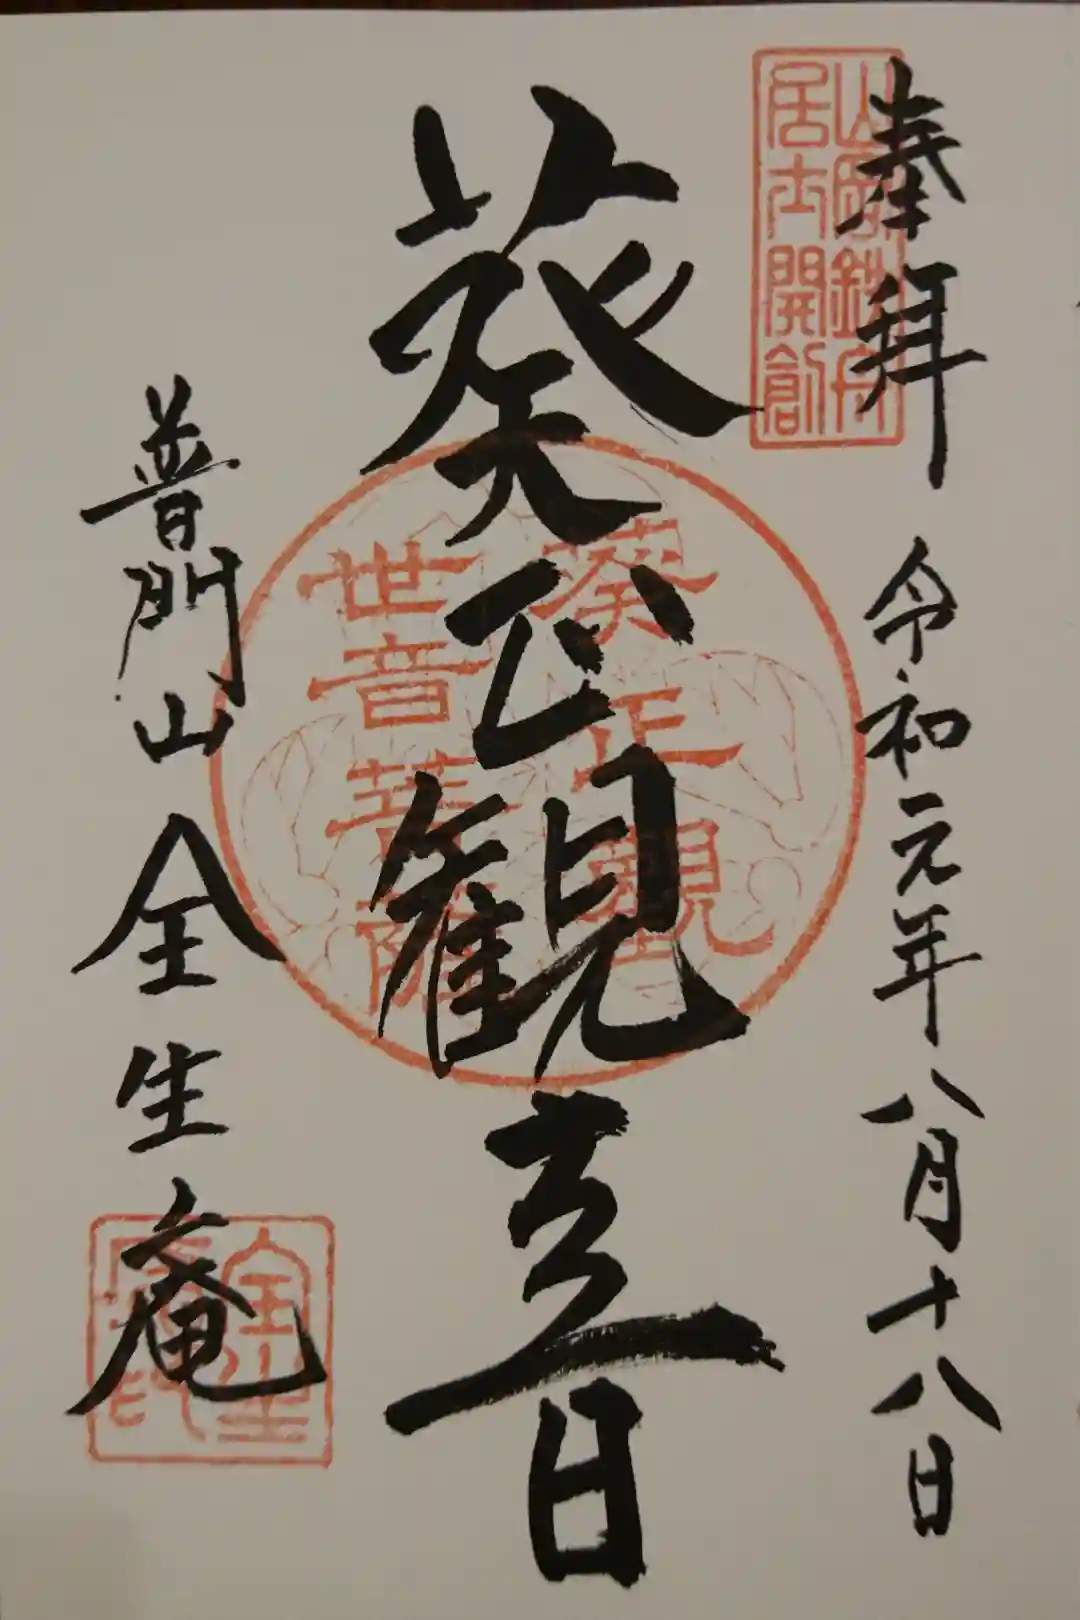 奉拝 令和元年八月十八日
山岡鉄舟
居士開創
葵正観音
葵正觀
世音菩薩
普門山 全生庵
全生
庵印